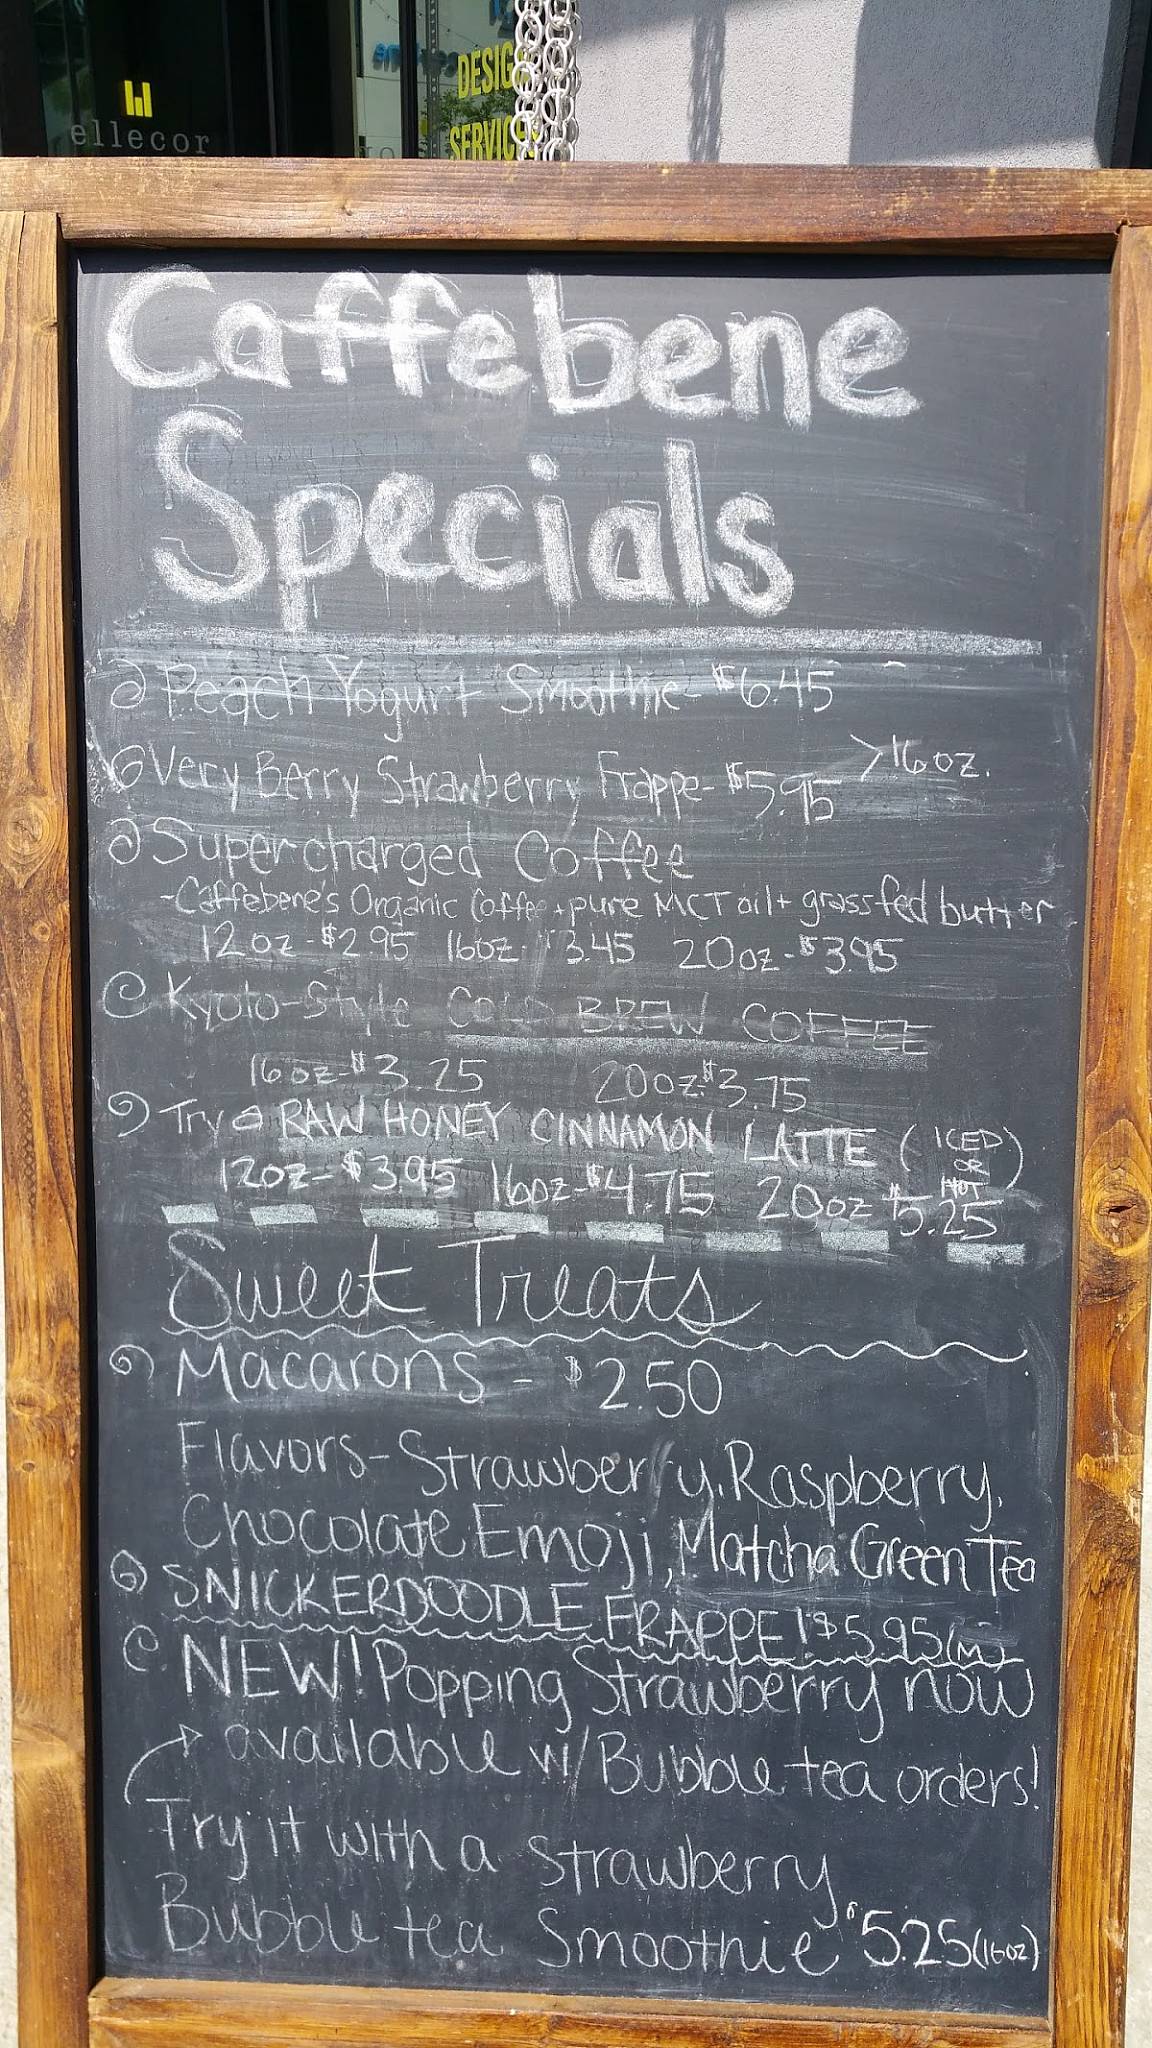 DESIGN
SERVICES
ellecor
Caffebene
Specials
Peach Yogurt Smoothie - $6.45
Very Berry Strawberry Frappe - $5.95 >16oz.
Supercharged Coffee
-Caffebene's Organic Coffee + pure MCT oil + grassfed butter
12oz - $2.95 16oz - $3.45 20oz - $3.95
Kyoto-Style COLD BREW COFFEE
16oz - $3.25 20oz - $3.75
Try a RAW HONEY CINNAMON LATTE (ICED OR HOT)
12oz - $3.95 16oz - $4.75 20oz $5.25
Sweet Treats
Macarons - $2.50
Flavors - Strawberry, Raspberry,
Chocolate Emoji, Matcha Green Tea
SNICKERDOODLE FRAPPE! $5.95 (M)
NEW! Popping Strawberry now
available w/ Bubble tea orders!
Try it with a Strawberry
Bubble tea Smoothie $5.25 (16oz)